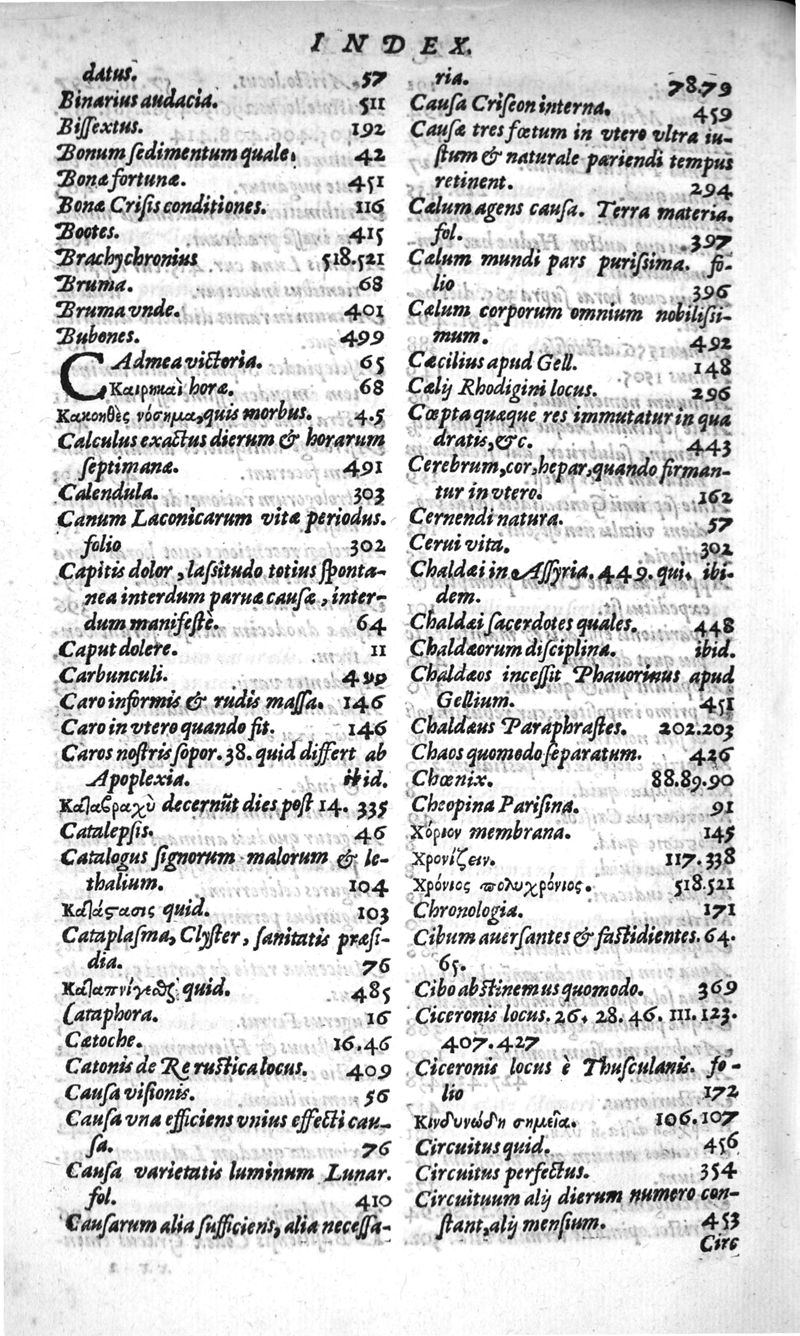 INDEX.
datus. 57
Binarius audacia. 511
Biſſextus. 192
Bonum ſedimentum quale. 42
Bonæ fortunæ. 451
Bonæ Criſis conditiones. 116
Bootes. 415
Brachychronius 518.521
Bruma. 68
Bruma vnde. 401
Bubones. 499
CAdmea victoria. 65
Καιρικαὶ horæ. 68
Κακοηθὲς νόσημα, quis morbus. 4.5
Calculus exactus dierum & horarum
ſeptimanæ. 491
Calendula. 303
Canum Laconicarum vitæ periodus.
folio 302
Capitis dolor, laſsitudo totius ſponta-
nea interdum paruæ cauſæ, inter-
dum manifeſte. 64
Caput dolere. 11
Carbunculi. 499
Caro informis & rudis maſſa. 146
Caro in vtero quando fit. 146
Caros noſtris ſopor. 38. quid differt ab
Apoplexia. ibid.
Καταβραχὺ decernũt dies poſt 14. 335
Catalepſis. 46
Catalogus ſignorum malorum & le-
thalium. 104
Κατάϛασις quid. 103
Cataplaſma, Clyſter, ſanitatis præſi-
dia. 76
quid. 485
Cataphora. 16
Catoche. 16.46
Catonis de Re ruſtica locus. 409
Cauſa viſionis. 56
Cauſa vna efficiens vnius effecti cau-
ſa. 76
Cauſa varietatis luminum Lunar.
fol. 410
Cauſarum alia ſufficiens, alia neceſſa-
ria. 78.79
Cauſa Criſeon interna. 459
Cauſæ tres fœtum in vtero vltra iu-
ſtum & naturale pariendi tempus
retinent. 294
Cælum agens cauſa. Terra materia.
fol. 397
Cælum mundi pars puriſsima. fo-
lio 396
Cælum corporum omnium nobiliſsi-
mum. 492
Cæcilius apud Gell. 148
Cælij Rhodigini locus. 296
Cœpta quæque res immutatur in qua
dratis, &c. 443
Cerebrum, cor, hepar, quando firman-
tur in vtero. 162
Cernendi natura. 57
Cerui vita. 302
Chaldæi in Aſſyria. 449. qui. ibi-
dem.
Chaldæi ſacerdotes quales. 448
Chaldæorum diſciplina. ibid.
Chaldæos inceſſit Phauorinus apud
Gellium. 451
Chaldæus Paraphraſtes. 202.203
Chaos quomodo ſeparatum. 426
Chœnix. 88.89.90
Cheopina Pariſina. 91
Χόριον membrana. 145
Χρονίζειν. 117.338
Χρόνιος πολυχρόνιος. 518.521
Chronologia. 171
Cibum auerſantes & faſtidientes. 64.
65.
Cibo abſtinemus quomodo. 369
Ciceronis locus. 26. 28. 46. 111. 123.
407.427
Ciceronis locus è Thuſculanis. fo-
lio 172
Κινδυνώδη σημεῖα. 106.107
Circuitus quid. 456
Circuitus perfectus. 354
Circuituum alij dierum numero con-
ſtant, alij menſium. 453
Circ